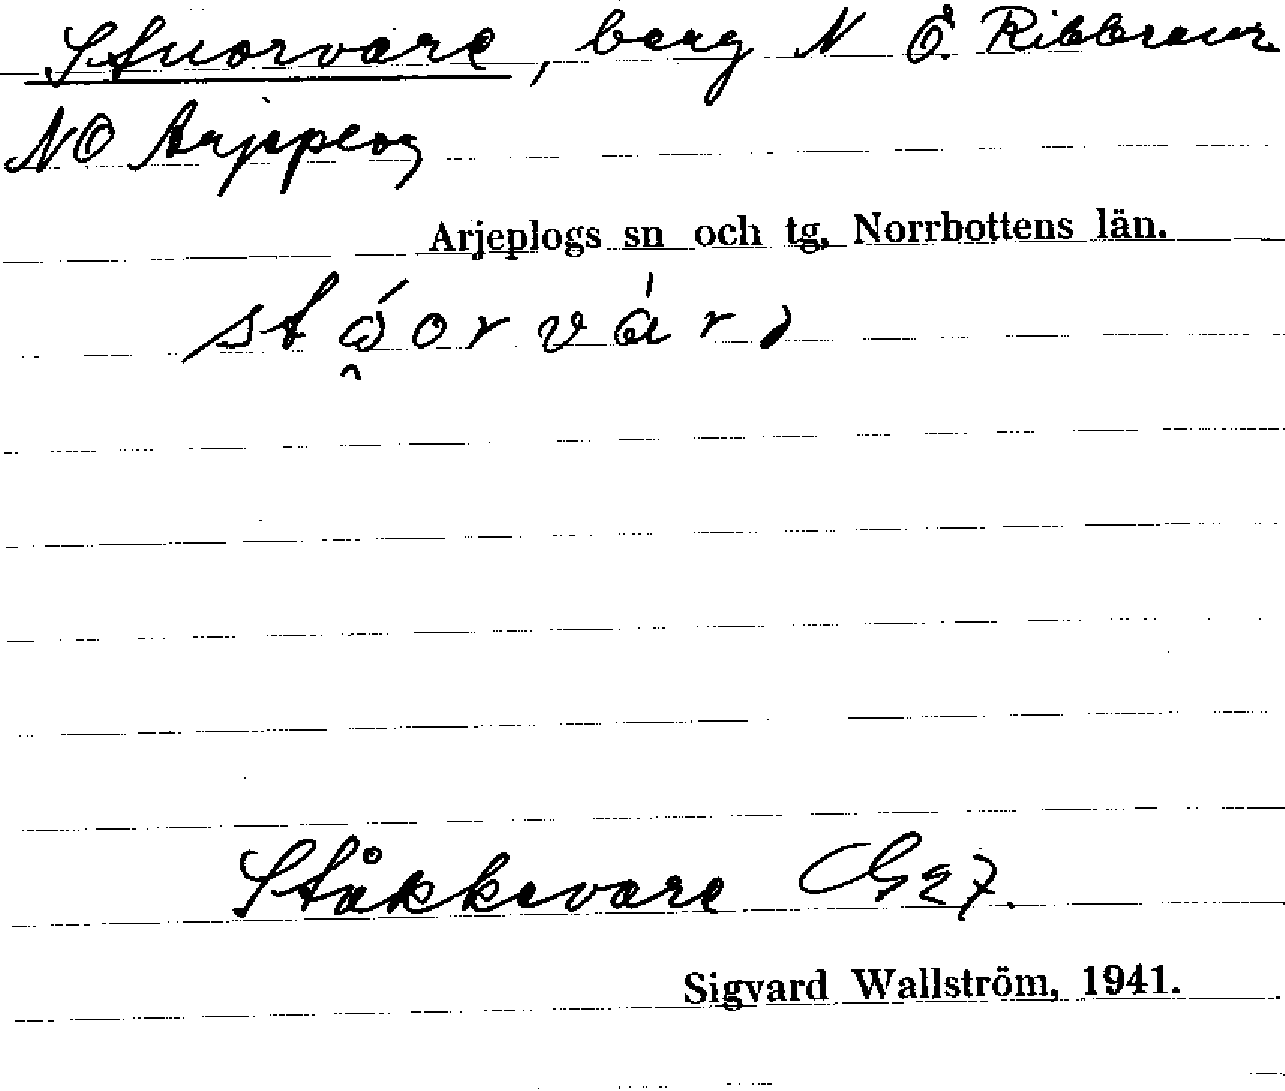 Stuorvare, berg N Ö. Ribbraur
NO Arjeplog
Arjeplogs sn och tg, Norrbottens län.
Ståkkevare G27.
Sigvard Wallström, 1941.